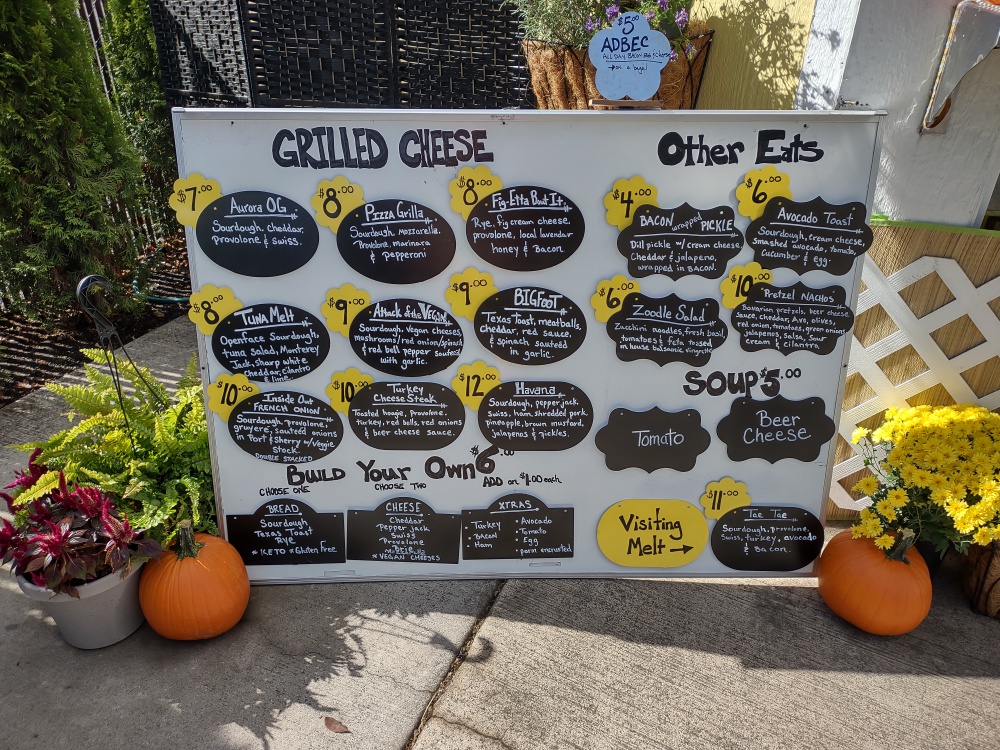 $5.00
ADBEC
ALL DAY BACON EGG & cheese
on a bagel
GRILLED CHEESE
$7.00
Aurora OG
Sourdough, cheddar,
provolone & swiss.
$8.00
Pizza Grilla
Sourdough, mozzarella,
Provolone, marinara
& pepperoni
$8.00
Fig-Etta Bout It
Rye, fig cream cheese,
provolone, local lavendar
honey & Bacon.
$8.00
Tuna Melt
Openface Sourdough,
tuna salad, Monterey
Jack, sharp white
cheddar, cilantro
& lime.
$9.00
Attack of the VEGAN
Sourdough, Vegan cheeses,
mushrooms/red onion/spinach
& red bell pepper sautéed
with garlic.
$9.00
BIGFOOT
Texas Toast, meatballs,
cheddar, red sauce,
& spinach sautéed
in garlic.
$10.00
Inside Out
FRENCH ONION
Sourdough, provolone,
gruyere, sautéed onions
in Port & Sherry w/Veggie
Stock.
DOUBLE STACKED
$10.00
Turkey
Cheese Steak
Toasted hoagie, provolone,
turkey, red bells, red onions
& beer cheese sauce.
$12.00
Havana
Sourdough, pepper jack,
Swiss, ham, shredded pork,
pineapple, brown mustard,
jalapenos & pickles.
Build Your Own $6.00
CHOOSE ONE
CHOOSE TWO
ADD on $1.00 each
BREAD
Sourdough
Texas Toast
Rye
* KETO * Gluten Free
CHEESE
Cheddar
Pepper jack
Swiss
Provolone
* VEGAN CHEESES
XTRAS
Turkey
Bacon
Ham
Avocado
Tomato
Egg
parm encrusted
Other Eats
$4.00
BACON wrapped PICKLE
Dill pickle w/ cream cheese,
Cheddar & jalapeno,
wrapped in BACON.
$6.00
Avocado Toast
Sourdough, cream cheese,
smashed avocado, tomato,
cucumber & egg.
$6.00
Zoodle Salad
Zucchini noodles, fresh basil,
tomatoes & feta tossed
in house balsamic vinegrette
$10.00
Pretzel NACHOS
Bavarian pretzels, beer cheese
sauce, cheddar, Avo, olives,
red onion, tomatoes, green onions
jalapenos, salsa, sour
cream & cilantro
SOUP $5.00
Tomato
Beer
Cheese
Visiting
Melt →
$11.00
Tae Tae
Sourdough, provolone,
Swiss, turkey, avocado
& Bacon.